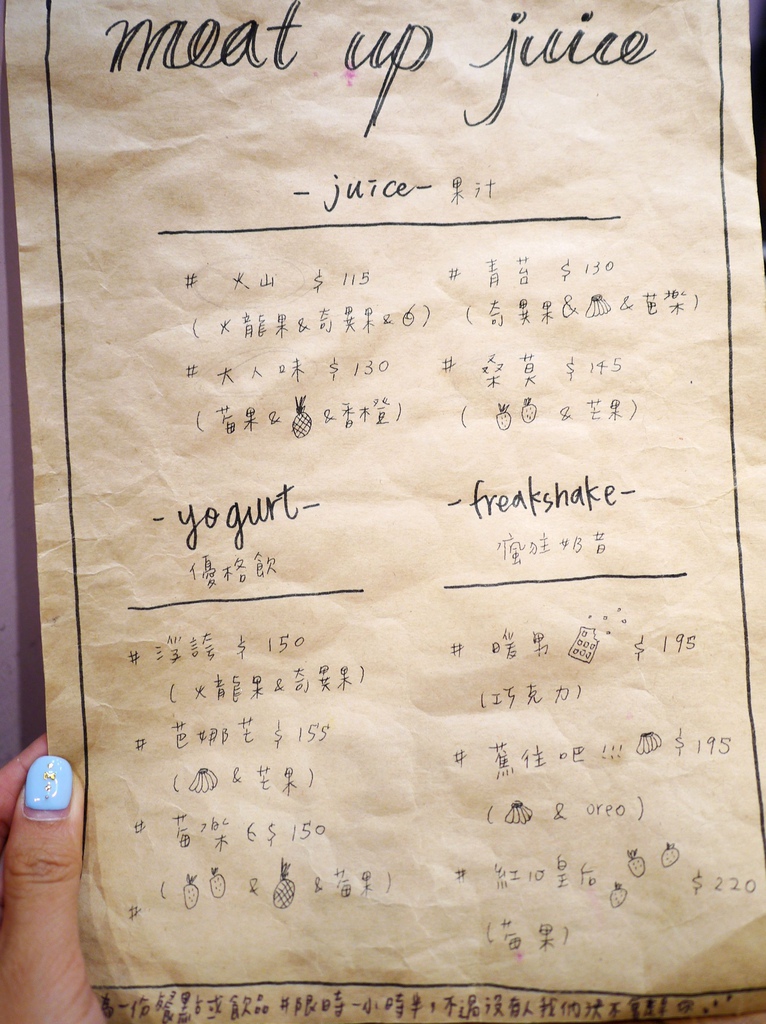 meat up juice
- juice - 果汁
# 火山 $ 115
(火龍果&奇異果&)
# 青苔 $ 130
(奇異果& &芭樂)
# 大人味 $ 130
(莓果& &香橙)
# 桑莫 $ 145
( & 芒果)
- yogurt -
優格飲
# 浮誇 $ 150
(火龍果&奇異果)
# 芭娜芒 $ 155
( & 芒果)
# 莓樂 $ 150
( & & 莓果)
#
- freakshake -
瘋狂奶昔
# 暖男 $ 195
(巧克力)
# 蕉往吧!!! $ 195
( & oreo)
# 紅心皇后 $ 220
(莓果)
一份餐點或飲品 #限時一小時半,不過沒有人我們決不會